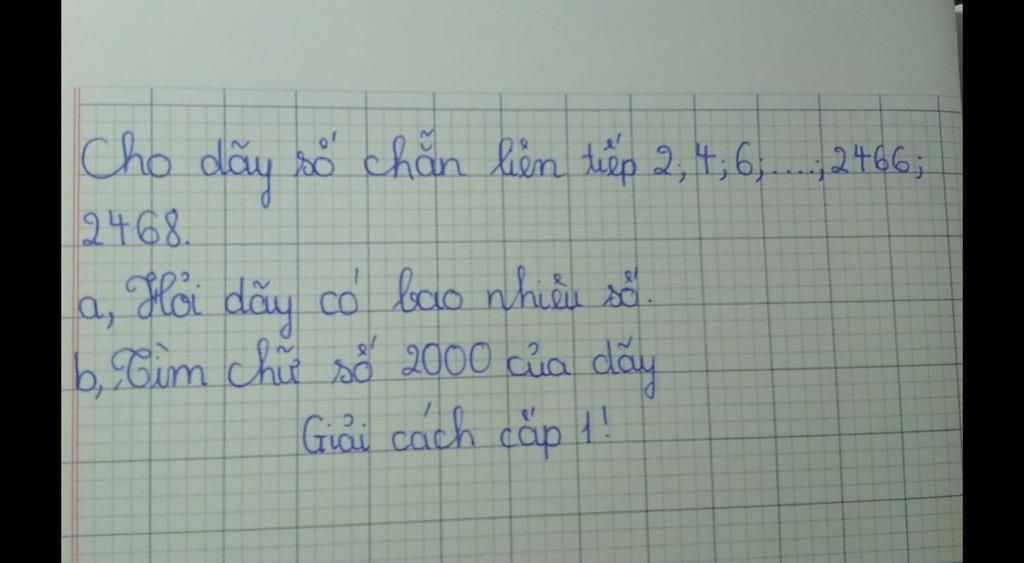 Cho dãy số chẵn liên tiếp 2; 4; 6; ....; 2466;
2468.
a, Hỏi dãy có bao nhiêu số.
b, Tìm chữ số 2000 của dãy
Giải cách cấp 1!